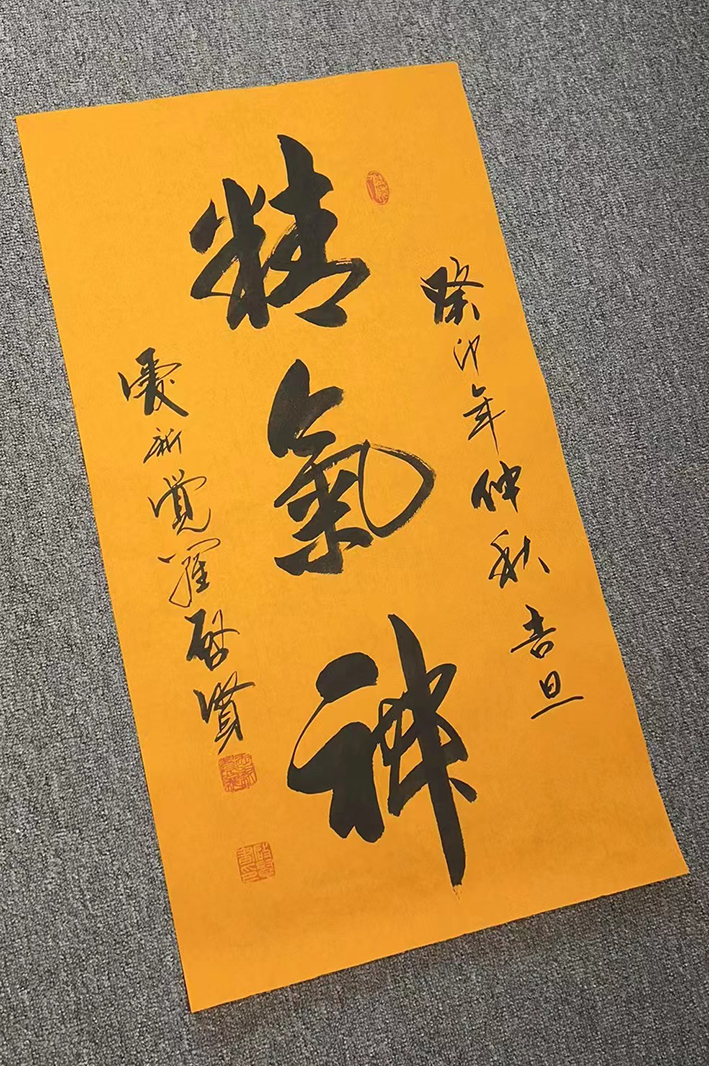 癸卯年仲秋吉旦
精氣神
愛新覺羅啓賢